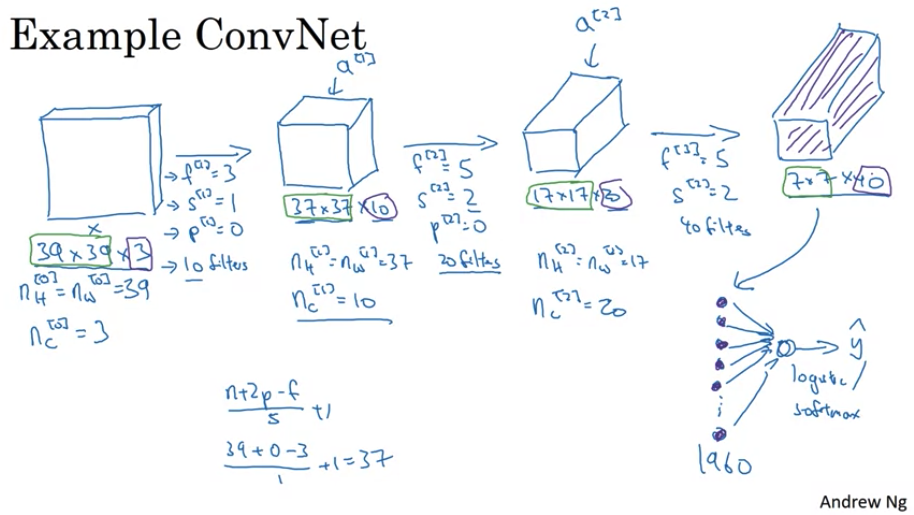 Example ConvNet
a^[1]
a^[2]
x
39 x 39 x 3
n_H^[0] = n_W^[0] = 39
n_C^[0] = 3
→ f^[1] = 3
→ s^[1] = 1
→ p^[1] = 0
→ 10 filters
37 x 37 x 10
n_H^[1] = n_W^[1] = 37
n_C^[1] = 10
f^[2] = 5
s^[2] = 2
p^[2] = 0
20 filters
17 x 17 x 20
n_H^[2] = n_W^[2] = 17
n_C^[2] = 20
f^[3] = 5
s^[3] = 2
40 filters
7 x 7 x 40
ŷ
logistic /
softmax
1960
(n + 2p - f)/s + 1
(39 + 0 - 3)/1 + 1 = 37
Andrew Ng